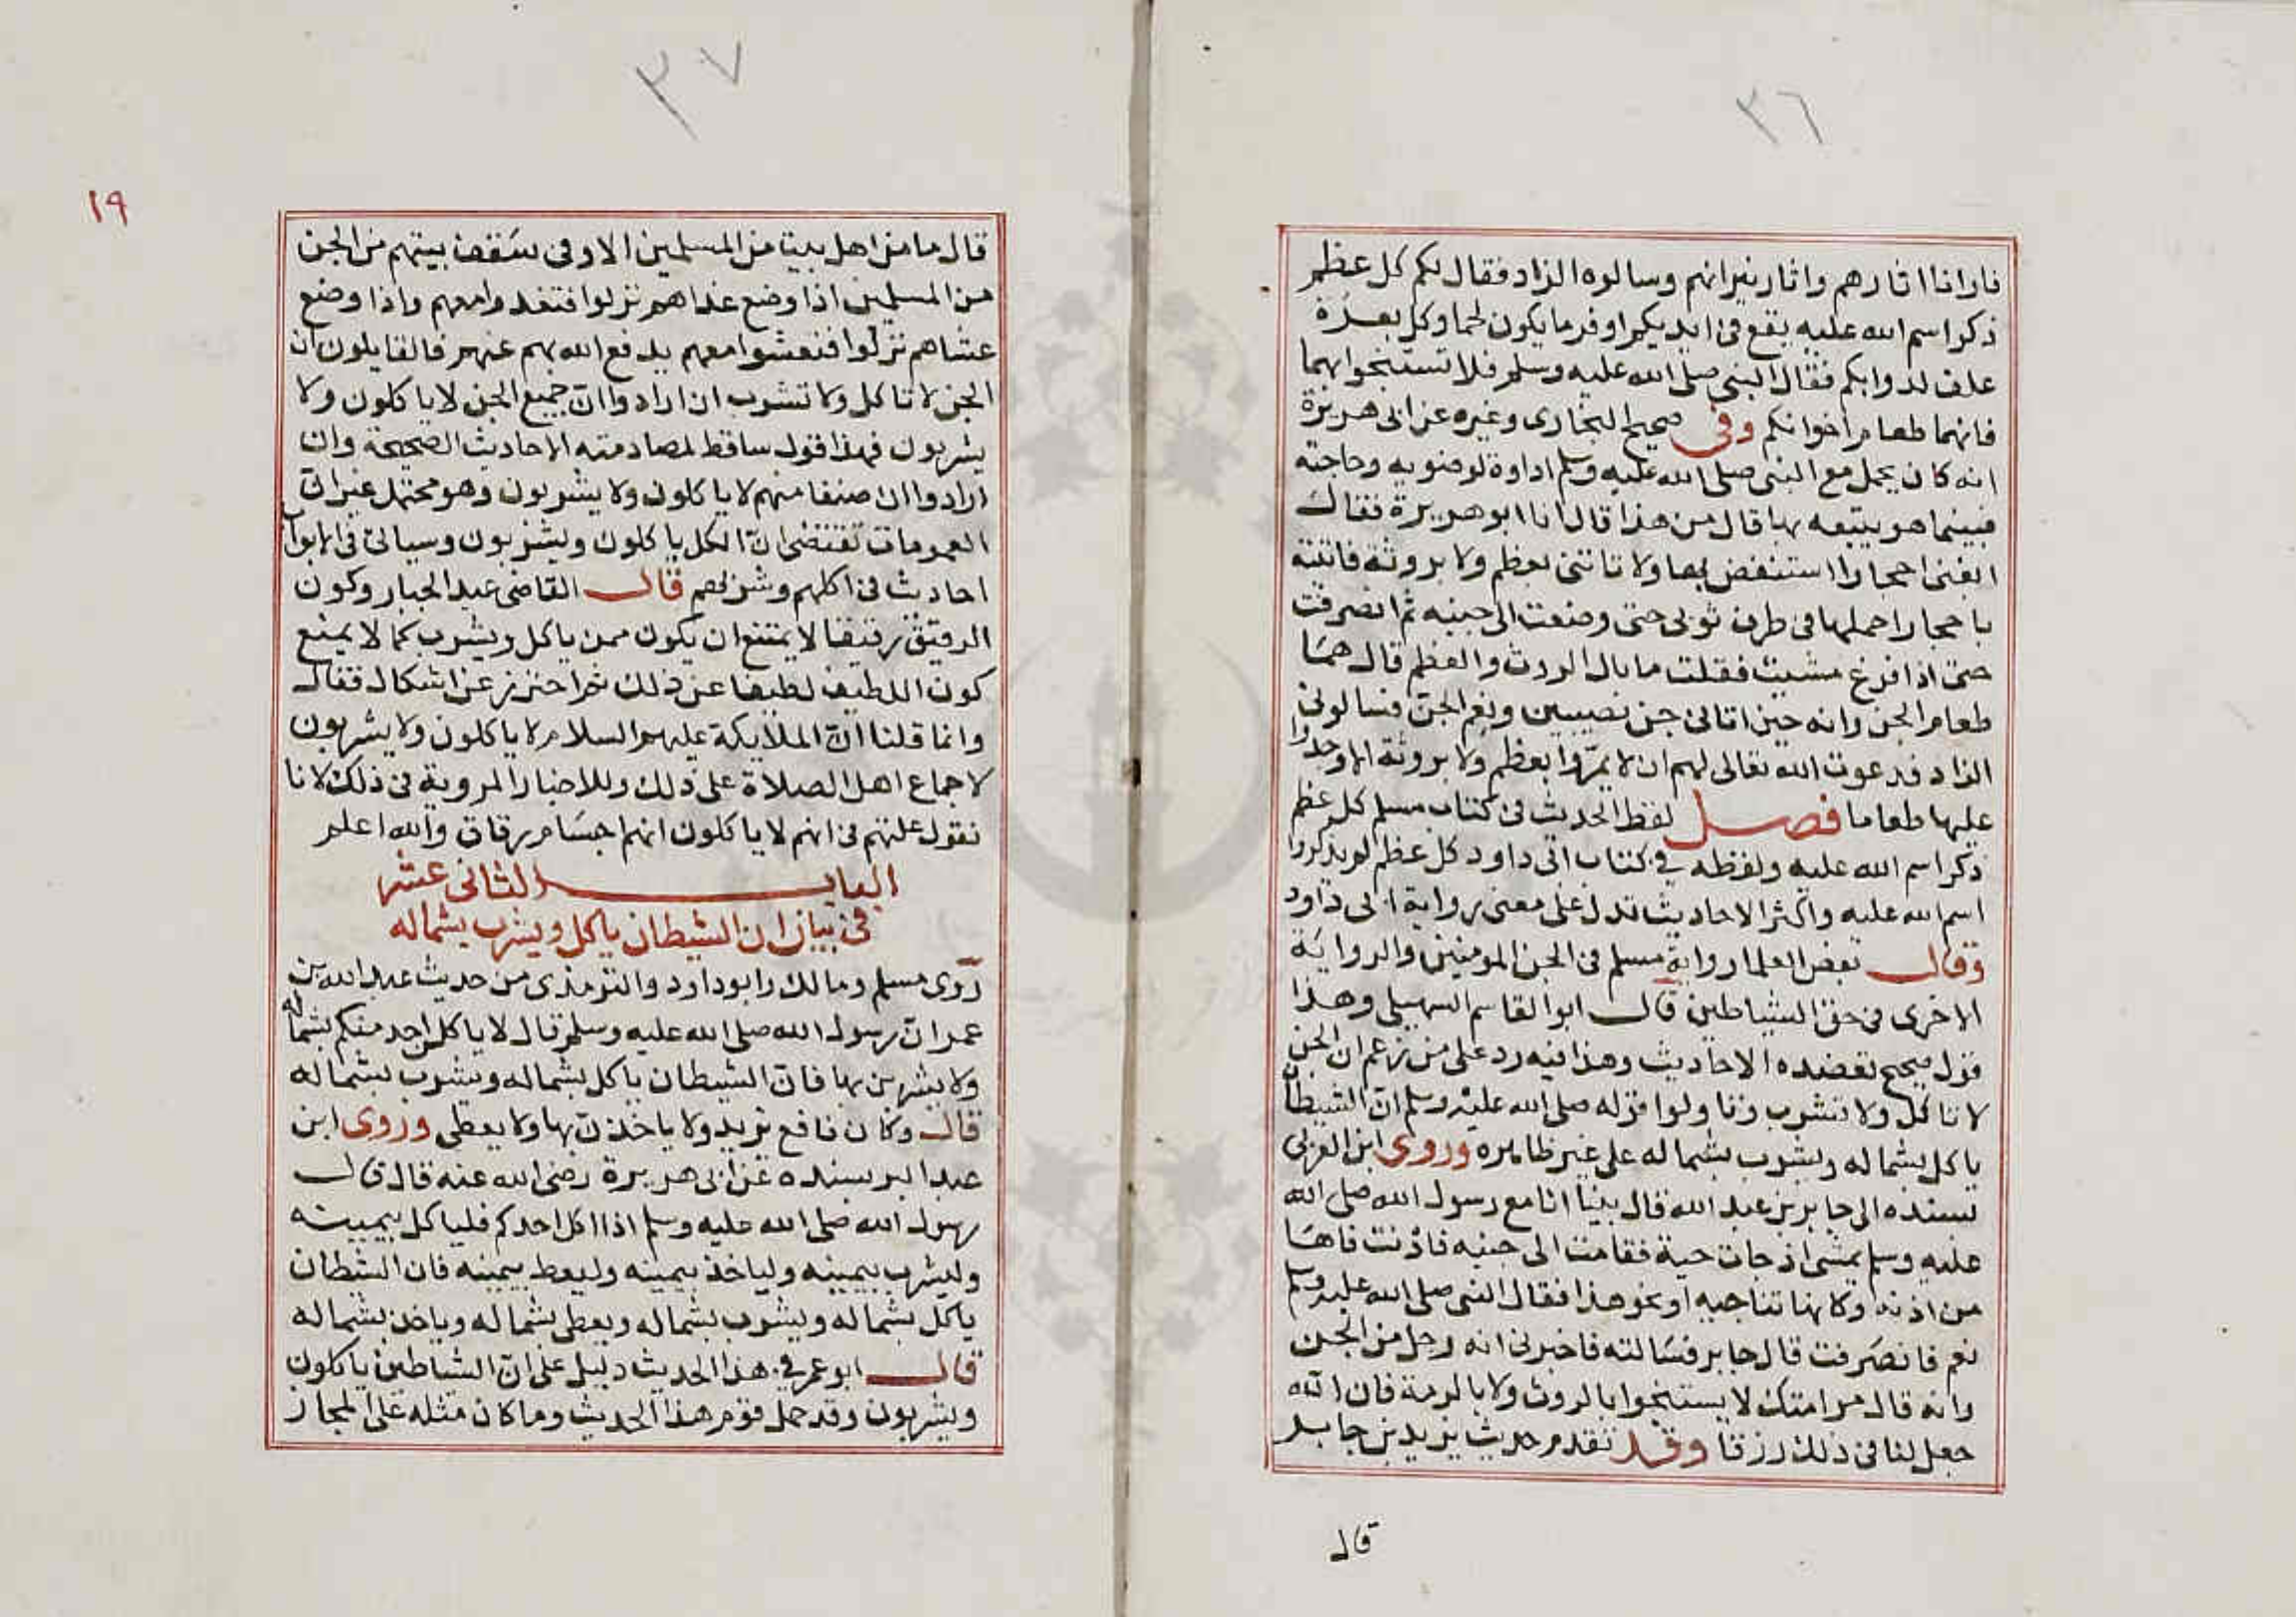 ٣٦
فارانا اثارهم واثار نيرانهم وسالوه الزاد فقال لكم كل عظم
ذكر اسم الله عليه يقع في ايديكم اوفر ما يكون لحما وكل بعرة
علف لدوابكم فقال النبي صلى الله عليه وسلم فلا تستنجوا بهما
فانهما طعام اخوانكم وفي صحيح البخاري وغيره عن ابي هريرة
انه كان يحمل مع النبي صلى الله عليه وسلم اداوة لوضويه وحاجته
فبينما هو يتبعه بها قال من هذا قال انا ابو هريرة فقال
ابغني احجارا استنفض بها ولا تاتني بعظم ولا بروثة فاتيته
باحجار احملها في طرف ثوبي حتى وضعت الى جنبه ثم انصرفت
حتى اذا فرغ مشيت فقلت ما بال الروث والعظم قال هما
طعام الجن وانه حين اتاني جن نصيبين ونعم الجن فسالوني
الزاد فدعوت الله تعالى لهم ان لا يمروا بعظم ولا بروثة الا وجدوا
عليها طعاما فصل لفظ الحديث في كتاب مسلم كل عظم
ذكر اسم الله عليه ولفظه في كتاب ابي داود كل عظم لم يذكروا
اسم الله عليه واكثر الاحاديث تدل على معنى رواية ابي داود
وقال بعض العلما رواية مسلم في الجن المومنين والرواية
الاخرى في حق الشياطين قال ابو القاسم السهيلي وهذا
قول صحيح تعضده الاحاديث وهذا فيه رد على من زعم ان الجن
لا تاكل ولا تشرب وتاولوا قوله صلى الله عليه وسلم ان الشيطان
ياكل بشماله ويشرب بشماله على غير ظاهره وروى ابن العربي
بسنده الى جابر بن عبد الله قال بينا انا مع رسول الله صلى الله
عليه وسلم يمشي اذ جات حية فقامت الى جنبه فادنت فاها
من اذنه وكانها تناجيه او نحو هذا فقال النبي صلى الله عليه وسلم
نعم فانصرفت قال جابر فسالته فاخبرني انه رجل من الجن
وانه قال مر امتك لا يستنجوا بالروث ولا بالرمة فان الله
جعل لنا في ذلك رزقا وقد تقدم حديث يزيد بن جابر
قال
٣٧
١٩
قال ما من اهل بيت من المسلمين الا وفي سقف بيتهم من الجن
من المسلمين اذا وضع غداهم نزلوا فتغدوا معهم واذا وضع
عشاهم نزلوا فتعشوا معهم يدفع الله بهم عنهم فالقايلون ان
الجن لا تاكل ولا تشرب ان ارادوا ان جميع الجن لا ياكلون ولا
يشربون فهذا قول ساقط لمصادمته الاحاديث الصحيحة وان
ارادوا ان صنفا منهم لا ياكلون ولا يشربون وهو محتمل غير ان
العمومات تقتضي ان الكل ياكلون ويشربون وسياتي في الابواب
احاديث في اكلهم وشربهم قال القاضي عبد الجبار وكون
الرقيق رقيقا لا يمتنع ان يكون ممن ياكل ويشرب كما لا يمنع
كون اللطيف لطيفا عن ذلك ثم احترز عن اشكال فقال
وانما قلنا ان الملايكة عليهم السلام لا ياكلون ولا يشربون
لاجماع اهل الصلاة على ذلك وللاخبار المروية في ذلك لا انا
نقول علتهم في انهم لا ياكلون انهم اجسام رقاق والله اعلم
الباب الثاني عشر
في بيان ان الشيطان ياكل ويشرب بشماله
روى مسلم ومالك وابو داود والترمذي من حديث عبد الله بن
عمر ان رسول الله صلى الله عليه وسلم قال لا ياكلن احد منكم بشماله
ولا يشربن بها فان الشيطان ياكل بشماله ويشرب بشماله
قال وكان نافع يزيد ولا ياخذن بها ولا يعطي وروى ابن
عبد البر بسنده عن ابي هريرة رضي الله عنه قال قال
رسول الله صلى الله عليه وسلم اذا اكل احدكم فلياكل بيمينه
وليشرب بيمينه ولياخذ بيمينه وليعط بيمينه فان الشيطان
ياكل بشماله ويشرب بشماله ويعطي بشماله وياخذ بشماله
قال ابو عمر في هذا الحديث دليل على ان الشياطين ياكلون
ويشربون وقد حمل قوم هذا الحديث وما كان مثله على المجاز